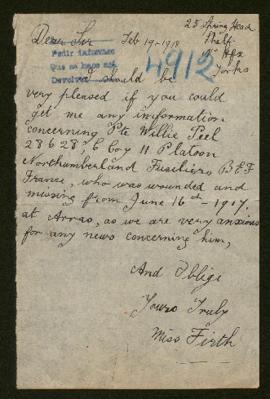 25 Spring Head
Shelf
Nr Hfx
Yorks
Dear Sir Feb 19-1918
Pedir informes
Que se hace así.
4912
I should be
very pleased if you could
get me any information
concerning Pte Willie Peel
28628 Coy 11 Platoon
Northumberland Fusiliers B.E.F
France, who was wounded and
missing from June 16th-1917.
at Arras, as we are very anxious
for any news concerning him,
And Oblige
Yours Truly
Miss Firth